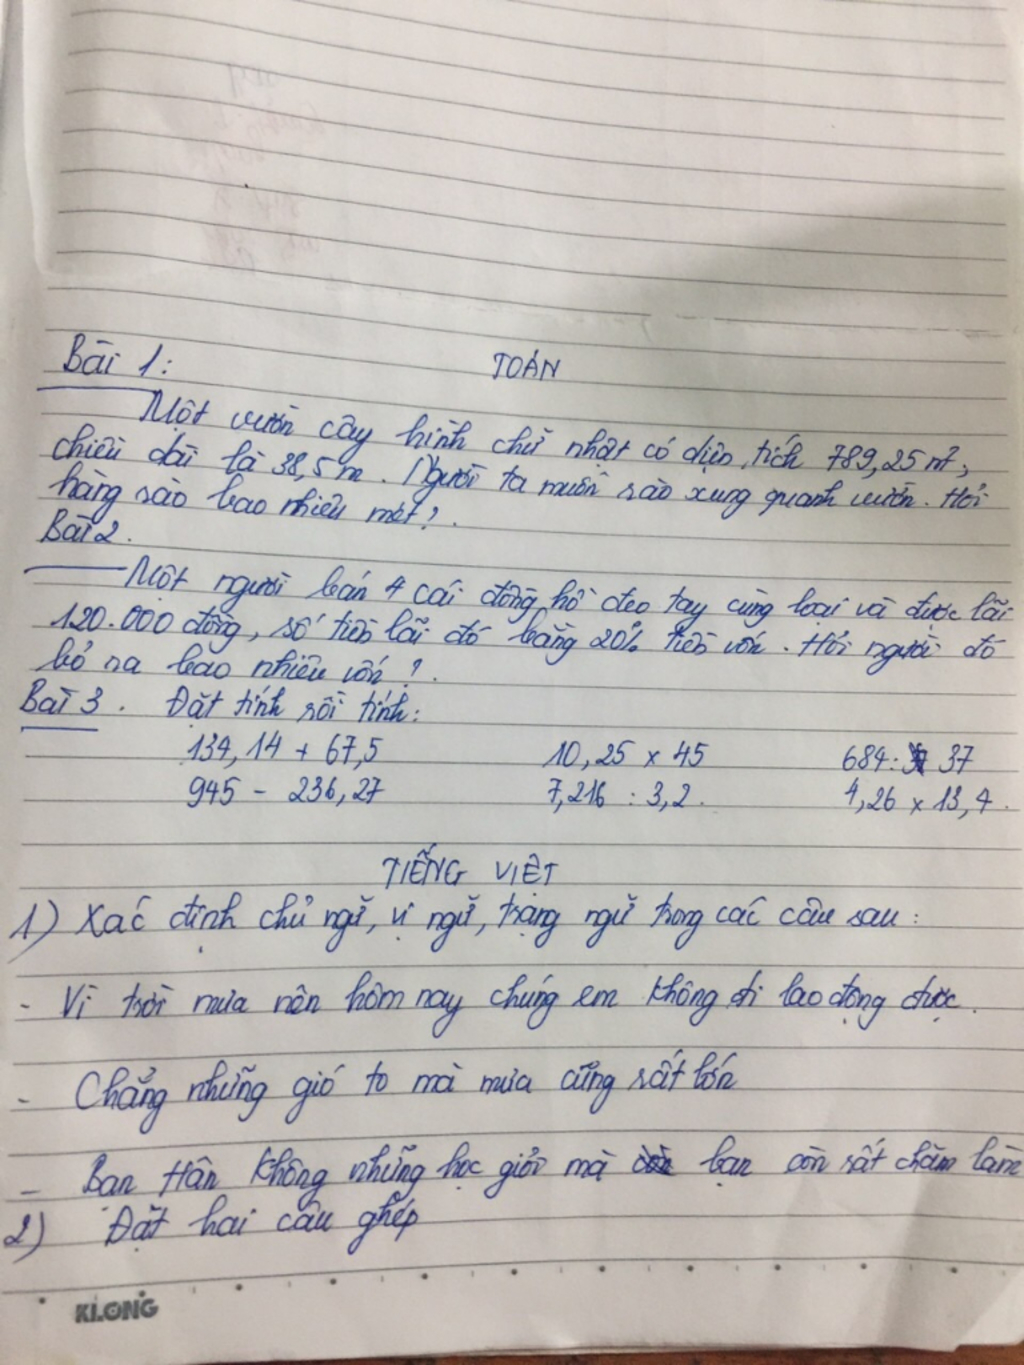 Bài 1: TOÁN
Một vườn cây hình chữ nhật có diện tích 789,25 m²,
chiều dài là 38,5 m. Người ta muốn rào xung quanh vườn. Hỏi
hàng rào bao nhiêu mét?.
Bài 2.
Một người bán 4 cái đồng hồ đeo tay cùng loại và được lãi
120.000 đồng, số tiền lãi đó bằng 20% tiền vốn. Hỏi người đó
bỏ ra bao nhiêu vốn?.
Bài 3. Đặt tính rồi tính:
134,14 + 67,5 10,25 x 45 684 : 37
945 - 236,27 7,216 : 3,2. 4,26 x 13,4.
TIẾNG VIỆT
1) Xác định chủ ngữ, vị ngữ, trạng ngữ trong các câu sau:
- Vì trời mưa nên hôm nay chúng em không đi lao động được.
- Chẳng những gió to mà mưa cũng rất lớn
- Bạn Hân không những học giỏi mà bạn còn rất chăm làm
2) Đặt hai câu ghép
KLONG